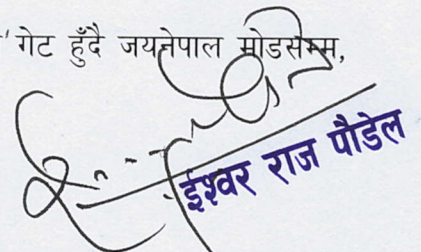 गेट हुँदै जयनेपाल मोडसम्म,
ईश्वर राज पौडेल